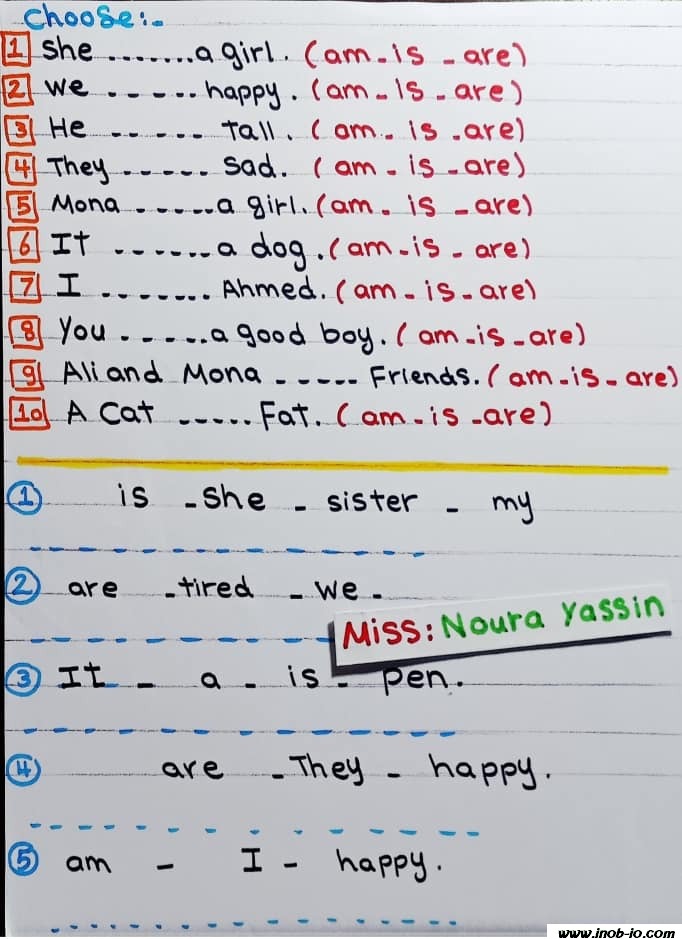 Choose:-
1 She ........a girl. (am - is - are)
2 we ------ happy. (am - is - are)
3 He ------ Tall. (am - is - are)
4 They ------ Sad. (am - is - are)
5 Mona ------a girl. (am - is - are)
6 It .......a dog. (am - is - are)
7 I ........ Ahmed. (am - is - are)
8 You ------a good boy. (am - is - are)
9 Ali and Mona ------ Friends. (am - is - are)
10 A Cat ------ Fat. (am - is - are)
1 is - she - sister - my
2 are - tired - we -
Miss: Noura Yassin
3 It - a - is - pen.
4 are - They - happy.
5 am - I - happy.
www.inob-io.com